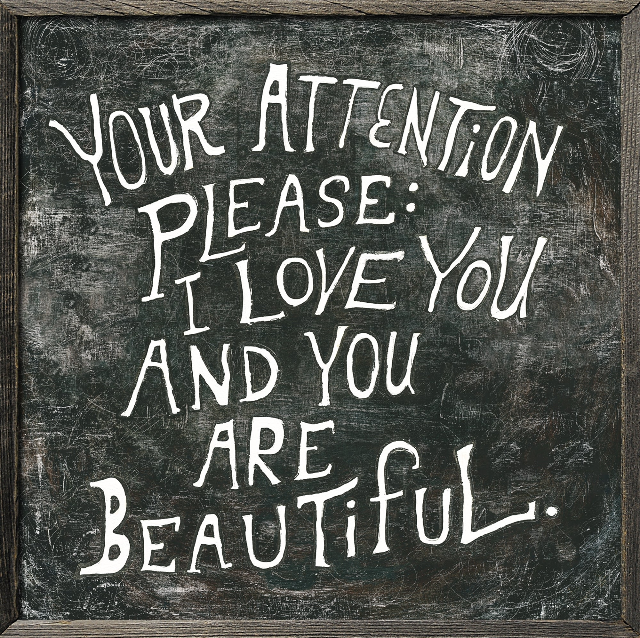 YOUR ATTENTION
PLEASE:
I LOVE YOU
AND YOU
ARE
BEAUTIFUL.